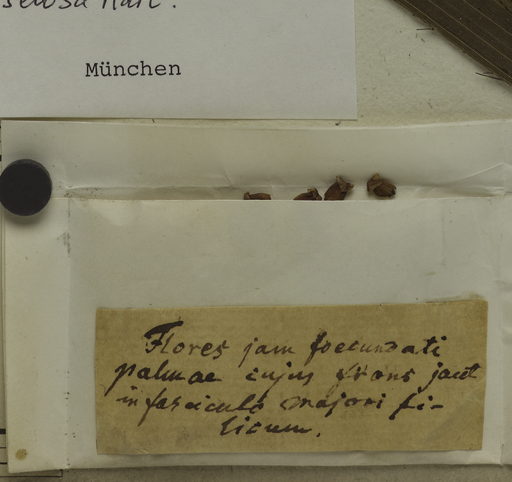 setosa Mart.
München
Flores jam foecundati
palmae cujus frons jacet
in fasciculo majori fi-
licum.